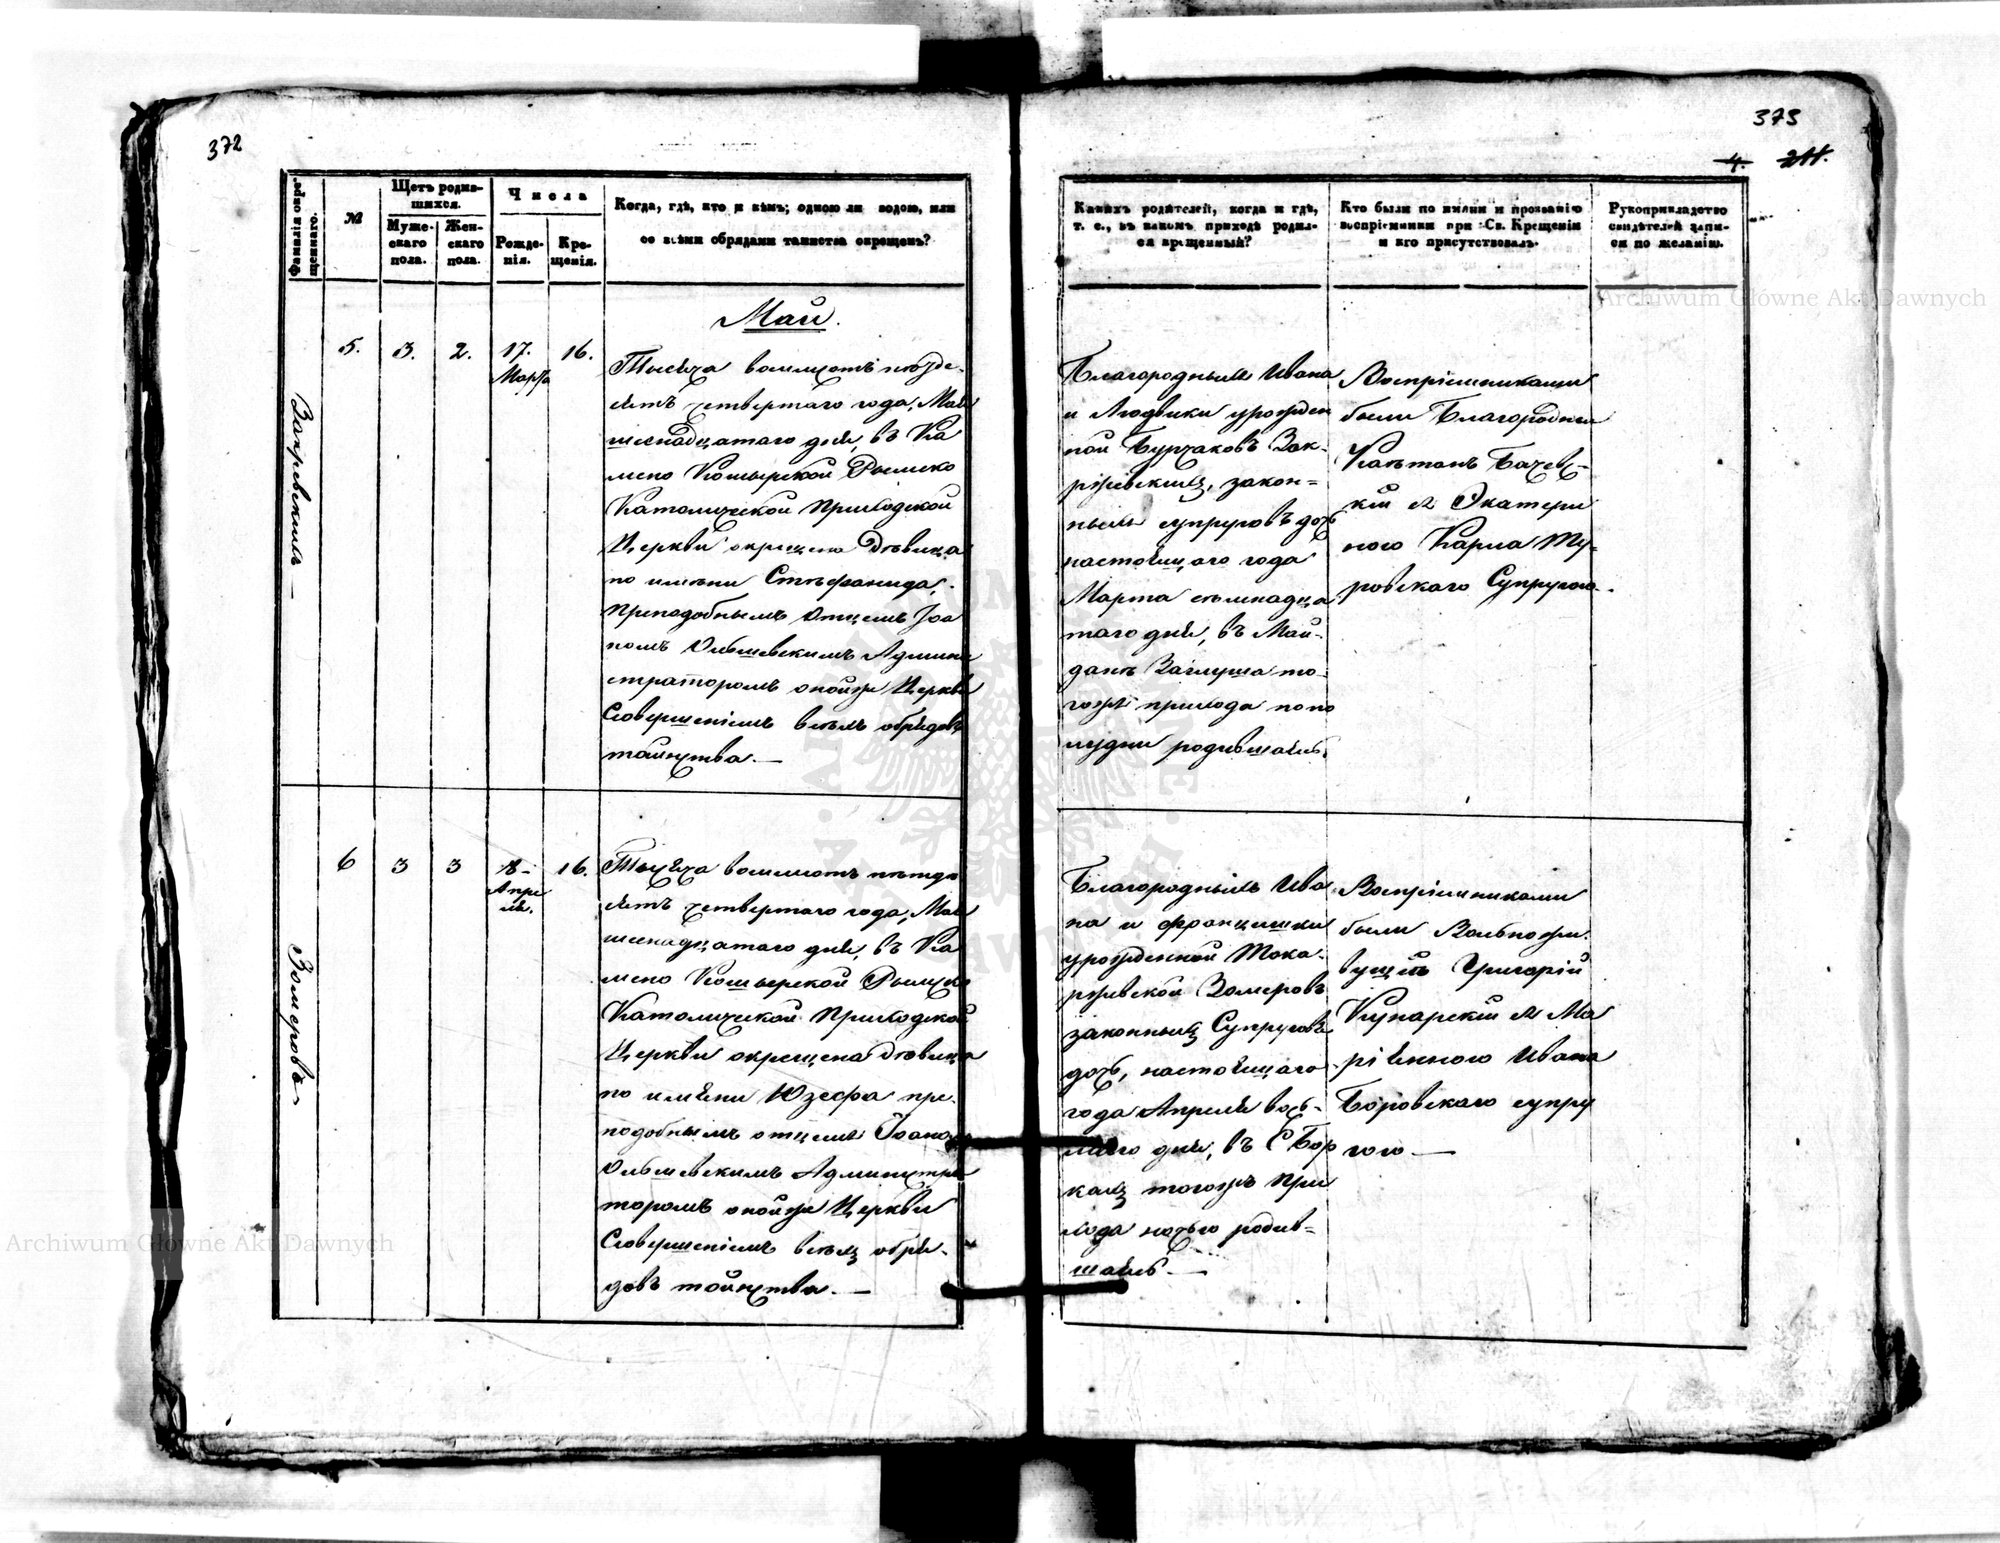 372
Фамилія окре-
щеннаго.
№
Щетъ родив-
шихся.
Муже-
скаго
пола.
Жен-
скаго
пола.
Числа
Рожде-
нія.
Кре-
щенія.
Когда, гдѣ, кто и кѣмъ; одною ли водою, или
со всѣми обрядами таинства окрещенъ?
Май.
5.
3.
2.
17.
Марта
16.
Тысяча восемьсотъ пятьде-
сятъ четвертаго года, Мая
шеснадцатаго дня, въ Ка
мено Кошырской Рымско
Католической Приходской
Церкви окрещена Дѣвица
по имѣни Стефанида,
Преподобнымъ Отцемъ Іоа
номъ Ольшевскимъ Админи
страторомъ онойже Церкви
Совершеніемъ всѣхъ обрядовъ
таинства. —
6
3
3
18-
Апре
ля.
16.
Тысяча восемьсотъ пятьде
сятъ четвертаго года, Мая
шеснадцатаго дня, въ Ка
мено Кошырской Рымско
Католической Приходской
Церкви окрещена Дѣвица
по имяни Юзефа пре-
подобнымъ отцемъ Іоаном
Ольшевскимъ Администра
торомъ онойже Церкви
Совершеніемъ всѣхъ обря-
довъ таинства. —
Зомеровъ
373
4.
211.
Какихъ родителей, когда и гдѣ,
т. е., въ какомъ приходѣ родил-
ся крещенный?
Кто были по имени и прозванію
воспріемники при Св. Крещеніи
и кто присутствовалъ.
Рукоприкладство
свидѣтелей запи-
си по желанію.
Благородныхъ Ивана
и Людвики урожден
ной Бурчаковъ Зак-
ржевскихъ, закон-
ныхъ супруговъ дочь
настоящаго года
Марта семнадца
таго дня, въ Май-
данѣ Заглуша то-
гожъ прихода по по
лудни родившаясь.
Воспріемниками
были Благородные
Каетанъ Бачев-
кій и Экатери
ного Карла Ту-
ровскаго Супругою.
Благородныхъ Ива
на и Францишки
урожденной Тока-
ржевской Зомеровъ
законныхъ Супруговъ
дочь, настоящаго
года Апреля вось-
маго дня, въ С Бор
кахъ тогожъ При
хода ночью родив-
шаясь. —
Воспріемниками
были Вольножи-
вущій Григорій
и Ма
рiянного Ивана
Боровскаго супру
гою —
Archiwum Główne Akt Dawnych
Archiwum Główne Akt Dawnych